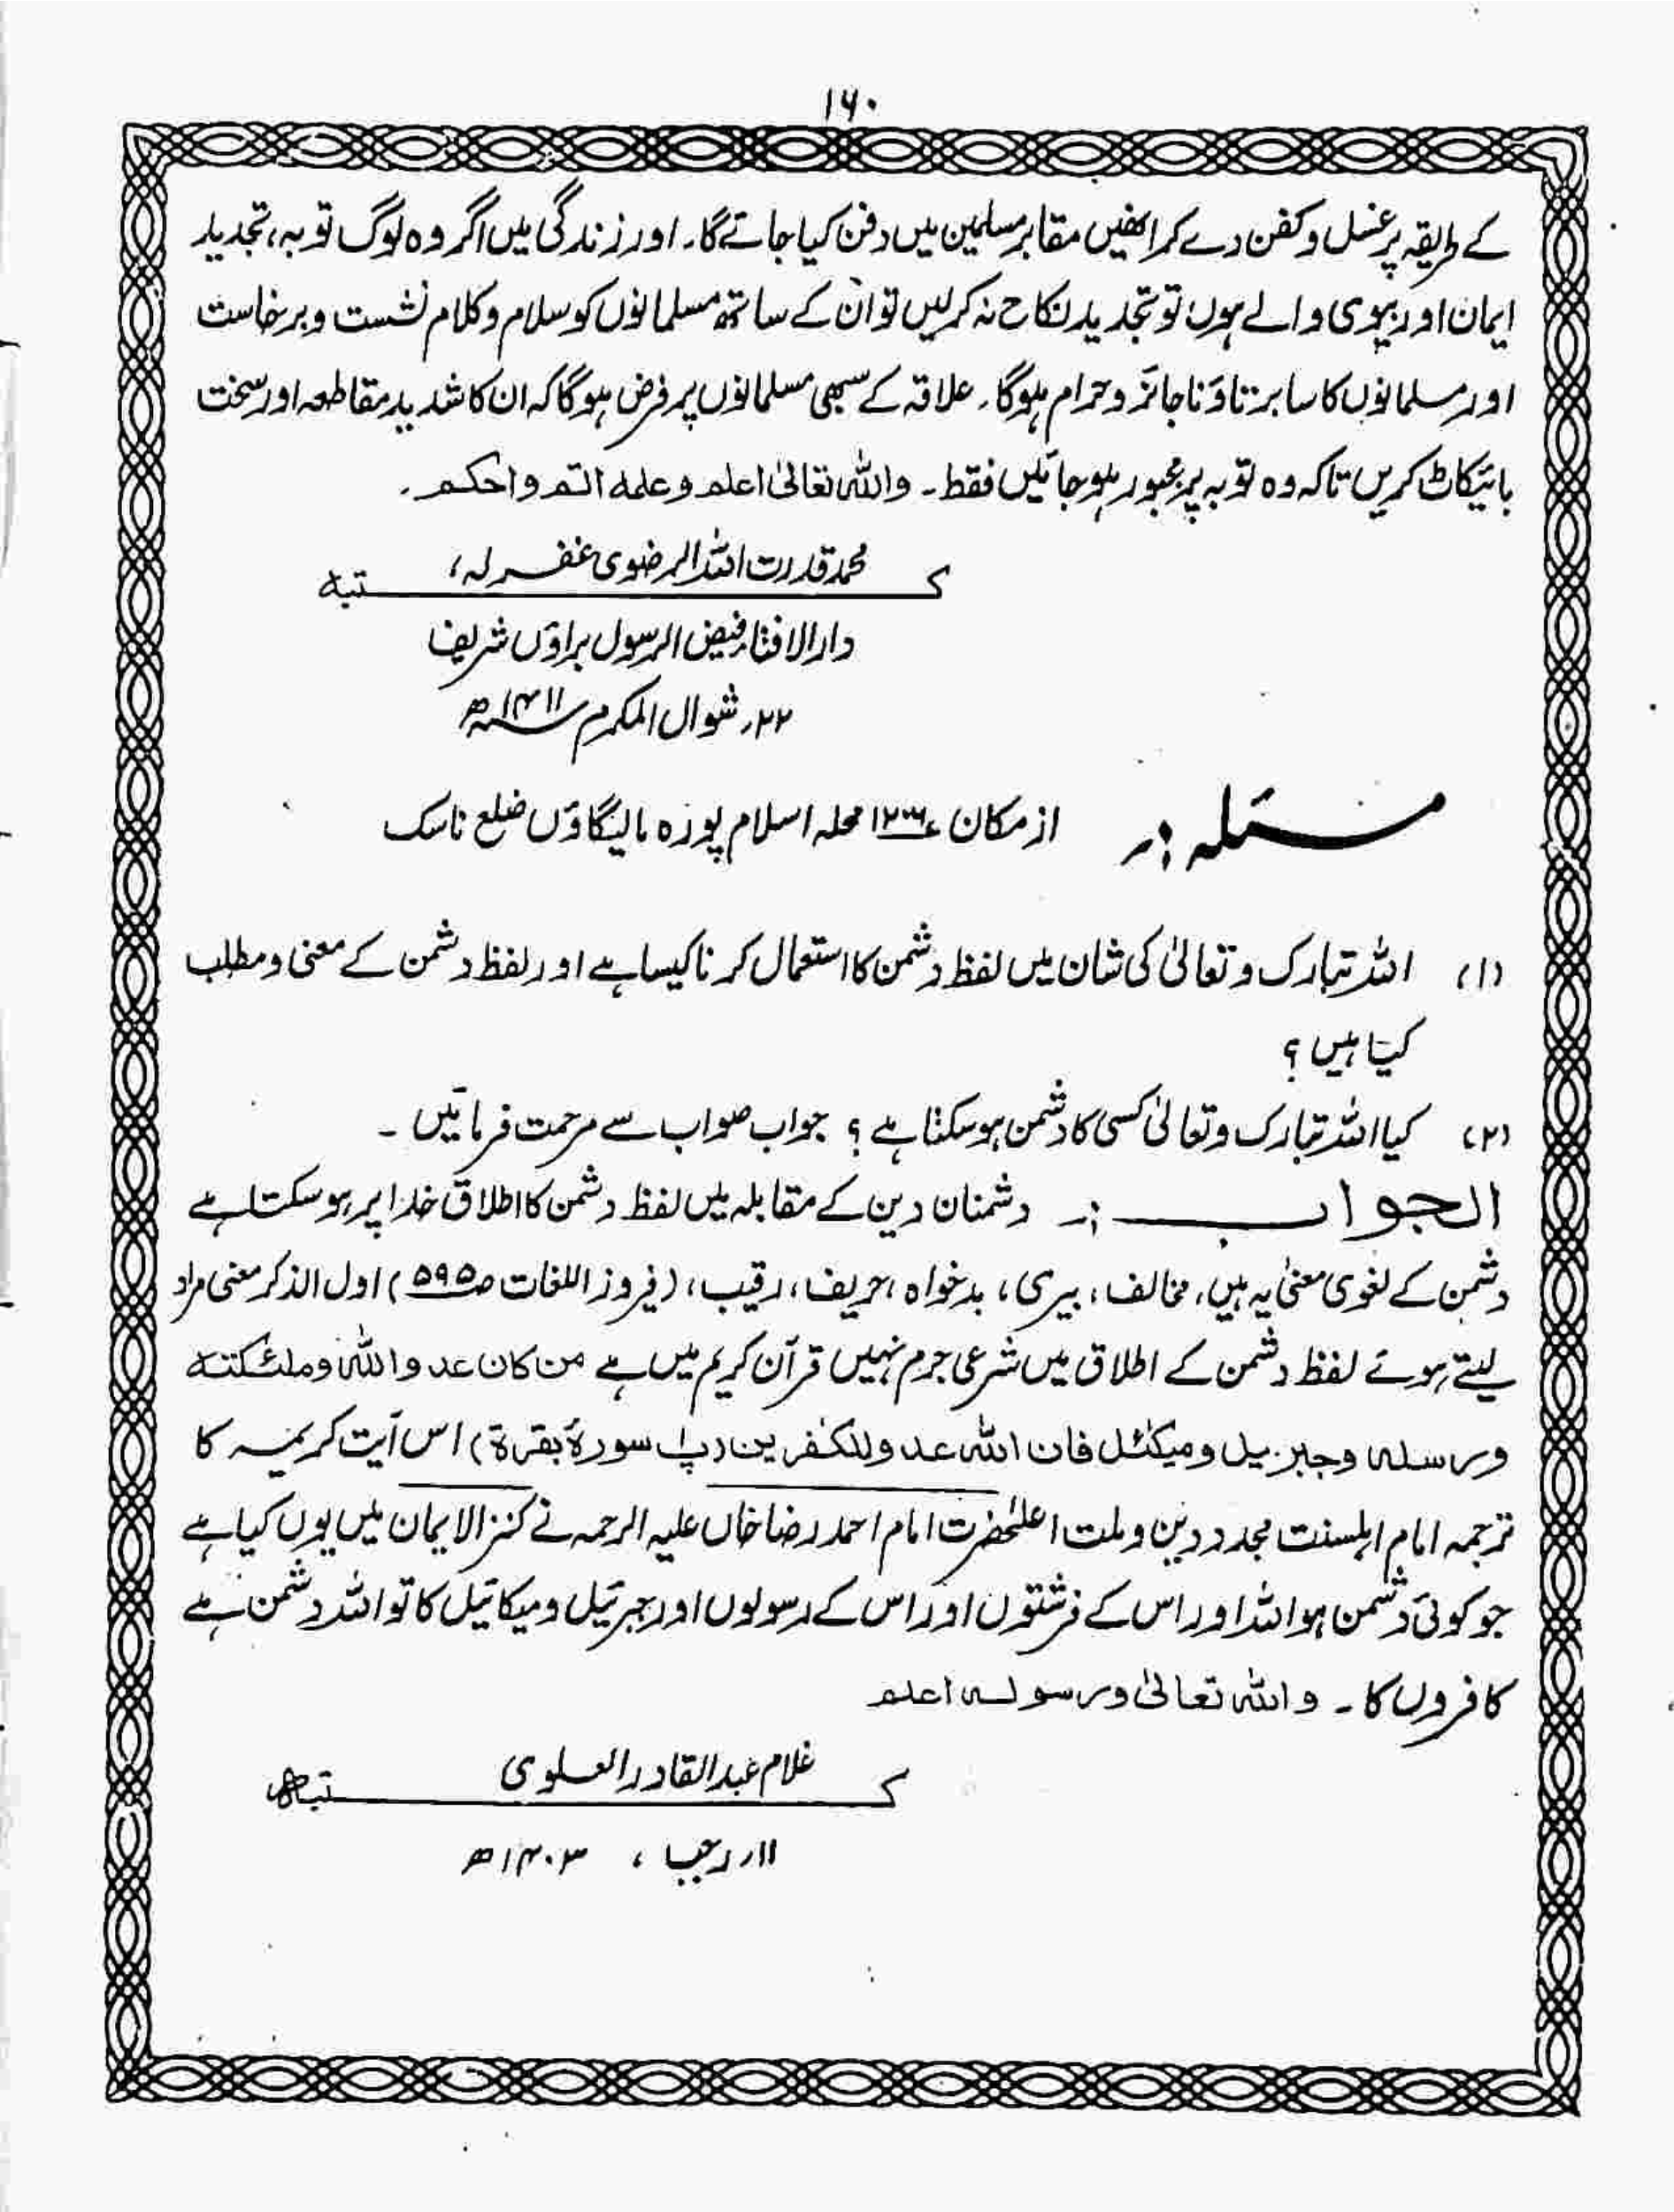 ۱۶۰
کے طریقہ پر غسل و کفن دے کر انھیں مقابر مسلمین میں دفن کیا جائے گا۔ اور زندگی میں اگر وہ لوگ توبہ، تجدید
ایمان اور بیوی والے ہوں تو تجدید نکاح نہ کرلیں تو ان کے ساتھ مسلمانوں کو سلام و کلام نشست و برخاست
اور مسلمانوں کا سا برتاؤ ناجائز و حرام ہوگا۔ علاقہ کے سبھی مسلمانوں پر فرض ہوگا کہ ان کا شدید مقاطعہ اور سخت
بائیکاٹ کریں تاکہ وہ توبہ پر مجبور ہو جائیں فقط۔ واللہ تعالیٰ اعلم وعلمه اتم واحکم۔
کتبہ محمد قدرت اللہ الرضوی غفرلہ،
دارالافتاء فیض الرسول براؤں شریف
۲۲؍ شوال المکرم ۱۴۱۱ھ
مسئلہ :۔ از مکان ۱۲۳۶ محلہ اسلام پورہ مالیگاؤں ضلع ناسک
(۱) اللہ تبارک و تعالیٰ کی شان میں لفظ دشمن کا استعمال کرنا کیسا ہے اور لفظ دشمن کے معنی و مطلب
کیا ہیں ؟
(۲) کیا اللہ تبارک و تعالیٰ کسی کا دشمن ہو سکتا ہے ؟ جواب صواب سے مرحمت فرمائیں ۔
الجواب :۔ دشمنان دین کے مقابلہ میں لفظ دشمن کا اطلاق خدا پر ہو سکتا ہے
دشمن کے لغوی معنیٰ یہ ہیں، مخالف، بیری، بدخواہ، حریف، رقیب، (فیروز اللغات ص۵۹۵) اول الذکر معنی مراد
لیتے ہوئے لفظ دشمن کے اطلاق میں شرعی جرم نہیں قرآن کریم میں ہے من کان عدوا للہ وملئکته
ورسله وجبریل ومیکئل فان اللہ عدو للکٰفرین (پ۱ سورۂ بقرۃ) اس آیت کریمہ کا
ترجمہ امام اہلسنت مجدد دین و ملت اعلٰحضرت امام احمد رضا خاں علیہ الرحمہ نے کنز الایمان میں یوں کیا ہے
جو کوئی دشمن ہو اللہ اور اس کے فرشتوں اور اس کے رسولوں اور جبرئیل و میکائیل کا تو اللہ دشمن ہے
کافروں کا ۔ واللہ تعالیٰ ورسولہ اعلم
کتبہ غلام عبدالقادر العلوی
۱۱؍ رجب ، ۱۴۰۳ھ